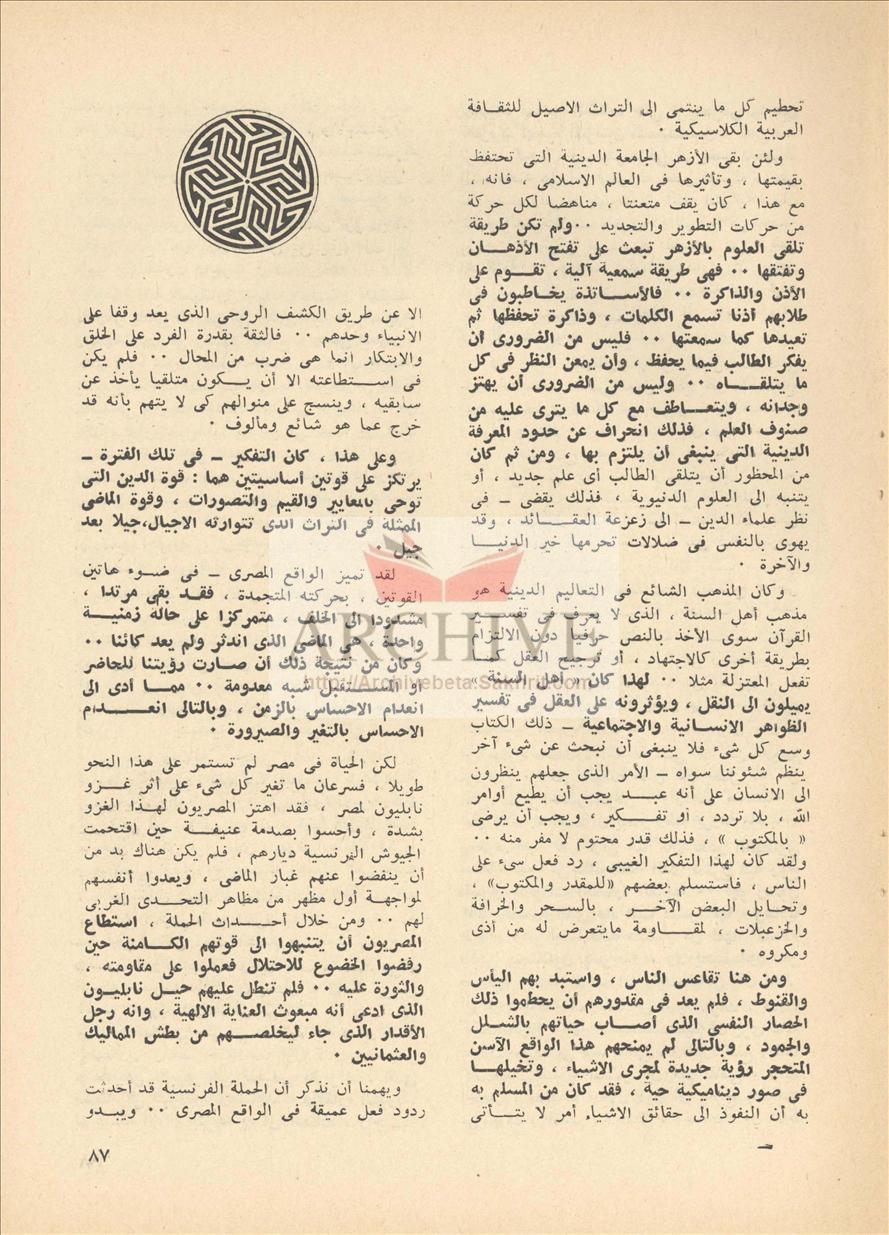 تحطيم كل ما ينتمى الى التراث الاصيل للثقـافة
العربية الكلاسيكية ٠
ولئن بقى الأزهر الجامعة الدينية التى تحتفظ
بقيمتها ، وتأثيرها فى العالم الاسلامى ، فانه ،
مع هذا ، كان يقف متعنتا ، مناهضا لكل حركة
من حركات التطوير والتجديد ٠٠ ولم تكن طريقة
تلقى العلوم بالأزهر تبعث على تفتح الأذهـان
وتفتقها ٠٠ فهى طريقة سمعية آلية ، تقـوم على
الأذن والذاكرة ٠٠ فالأسـاتذة يخـاطبون فى
طلابهم أذنا تسمع الكلمات ، وذاكرة تحفظها ثم
تعيدها كما سمعتها ٠٠ فليس من الضرورى أن
يفكر الطالب فيما يحفظ ، وأن يمعن النظر فى كل
ما يتلقـاه ٠٠ وليس من الضرورى أن يهتز
وجدانه ، ويتعـاطف مع كل ما يترى عليه من
صنوف العلم ، فذلك انحراف عن حدود المعرفة
الدينية التى ينبغى أن يلتزم بها ، ومن ثم كان
من المحظور أن يتلقى الطالب أى علم جديد ، أو
يتنبه الى العلوم الدنيوية ، فذلك يقضى ـ فى
نظر علماء الدين ـ الى زعزعة العقـائد ، وقد
يهوى بالنفس فى ضلالات تحرمها خير الدنيـا
والآخرة ٠
وكان المذهب الشائع فى التعاليم الدينية هو
مذهب أهل السنة ، الذى لا يعرف فى تفسـير
القرآن سوى الأخذ بالنص حرفيا دون الالتزام
بطريقة أخرى كالاجتهاد ، أو ترجيح العقل كمـا
تفعل المعتزلة مثلا ٠٠ لهذا كان « أهل السنة »
يميلون الى النقل ، ويؤثرونه على العقل فى تفسير
الظواهر الانسـانية والاجتماعية ـ ذلك الكتاب
وسع كل شىء فلا ينبغى أن نبحث عن شىء آخر
ينظم شئوننا سواه ـ الأمر الذى جعلهم ينظرون
الى الانسان على أنه عبـد يجب أن يطيع أوامر
الله ، بلا تردد ، أو تفـكير ، ويجب أن يرضى
« بالمكتوب » ، فذلك قدر محتوم لا مفر منه ٠٠
ولقد كان لهذا التفكير الغيبى ، رد فعل سىء على
الناس ، فاستسلم بعضهم «للمقدر والمكتوب» ،
وتحـايل البعض الآخـر ، بالسـحر والخرافة
والخزعبلات ، لمقـاومة مايتعرض له من أذى
ومكروه ٠
ومن هنا تقاعس الناس ، واستبد بهم اليأس
والقنوط ، فلم يعد فى مقدورهم أن يحطموا ذلك
الحصار النفسى الذى أصـاب حياتهم بالشـلل
والجمود ، وبالتالى لم يمنحهم هذا الواقع الآسن
المتحجر رؤية جديدة لمجرى الاشياء ، وتخيلهـا
فى صور ديناميكية حية ، فقد كان من المسلم به
به أن النفوذ الى حقائق الاشياء أمر لا يتـأتى
الا عن طريق الكشف الروحى الذى يعد وقفا على
الانبياء وحدهم ٠٠ فالثقة بقدرة الفرد على الخلق
والابتكار انما هى ضرب من المحال ٠٠ فلم يكن
فى اسـتطاعته الا أن يـكون متلقيا يأخذ عن
سابقيه ، وينسج على منوالهم كى لا يتهم بأنه قد
خرج عما هو شائع ومألوف ٠
وعلى هذا ، كان التفكير ـ فى تلك الفترة ـ
يرتكز على قوتين أساسيتين هما : قوة الدين التى
توحى بالمعايير والقيم والتصورات ، وقوة الماضى
الممثلة فى التراث الذى تتوارثه الاجيال،جيلا بعد
جيل ٠
لقد تميز الواقع المصرى ـ فى ضـوء هاتين
القوتين ، بحركته المتجمدة ، فقـد بقى مرتدا ،
مشدودا الى الخلف ، متمركزا على حالة زمنيـة
واحدة ، هى الماضى الذى اندثر ولم يعد كائنا ٠٠
وكان من نتيجة ذلك أن صـارت رؤيتنا للحاضر
أو المسـتقبل شبه معدومة ٠٠ ممـا أدى الى
انعدام الاحساس بالزمن ، وبالتالى انعـدام
الاحساس بالتغير والصيرورة ٠
لكن الحياة فى مصر لم تستمر على هذا النحو
طويلا ، فسرعان ما تغير كل شىء على أثر غـزو
نابليون لمصر ، فقد اهتز المصريون لهـذا الغزو
بشدة ، وأحسوا بصدمة عنيفـة حين اقتحمت
الجيوش الفرنسية ديارهم ، فلم يكن هناك بد من
أن ينفضوا عنهم غبار الماضى ، ويعدوا أنفسهم
لمواجهة أول مظهر من مظاهر التحـدى الغربى
لهم ٠٠ ومن خلال أحـداث الحملة ، استطاع
المصريون أن يتنبهوا الى قوتهم الكـامنة حين
رفضوا الخضوع للاحتلال فعملوا على مقاومته ،
والثورة عليه ٠٠ فلم تنطل عليهم حيـل نابليـون
الذى ادعى أنه مبعوث العناية الالهية ، وانه رجل
الأقدار الذى جاء ليخلصـهم من بطش المماليك
والعثمانيين ٠
ويهمنا أن نذكر أن الحملة الفرنسية قد أحدثت
ردود فعل عميقة فى الواقع المصرى ٠٠ ويبـدو
٨٧
ARCHIVE
http://Archivebeta.Sakhrit.com